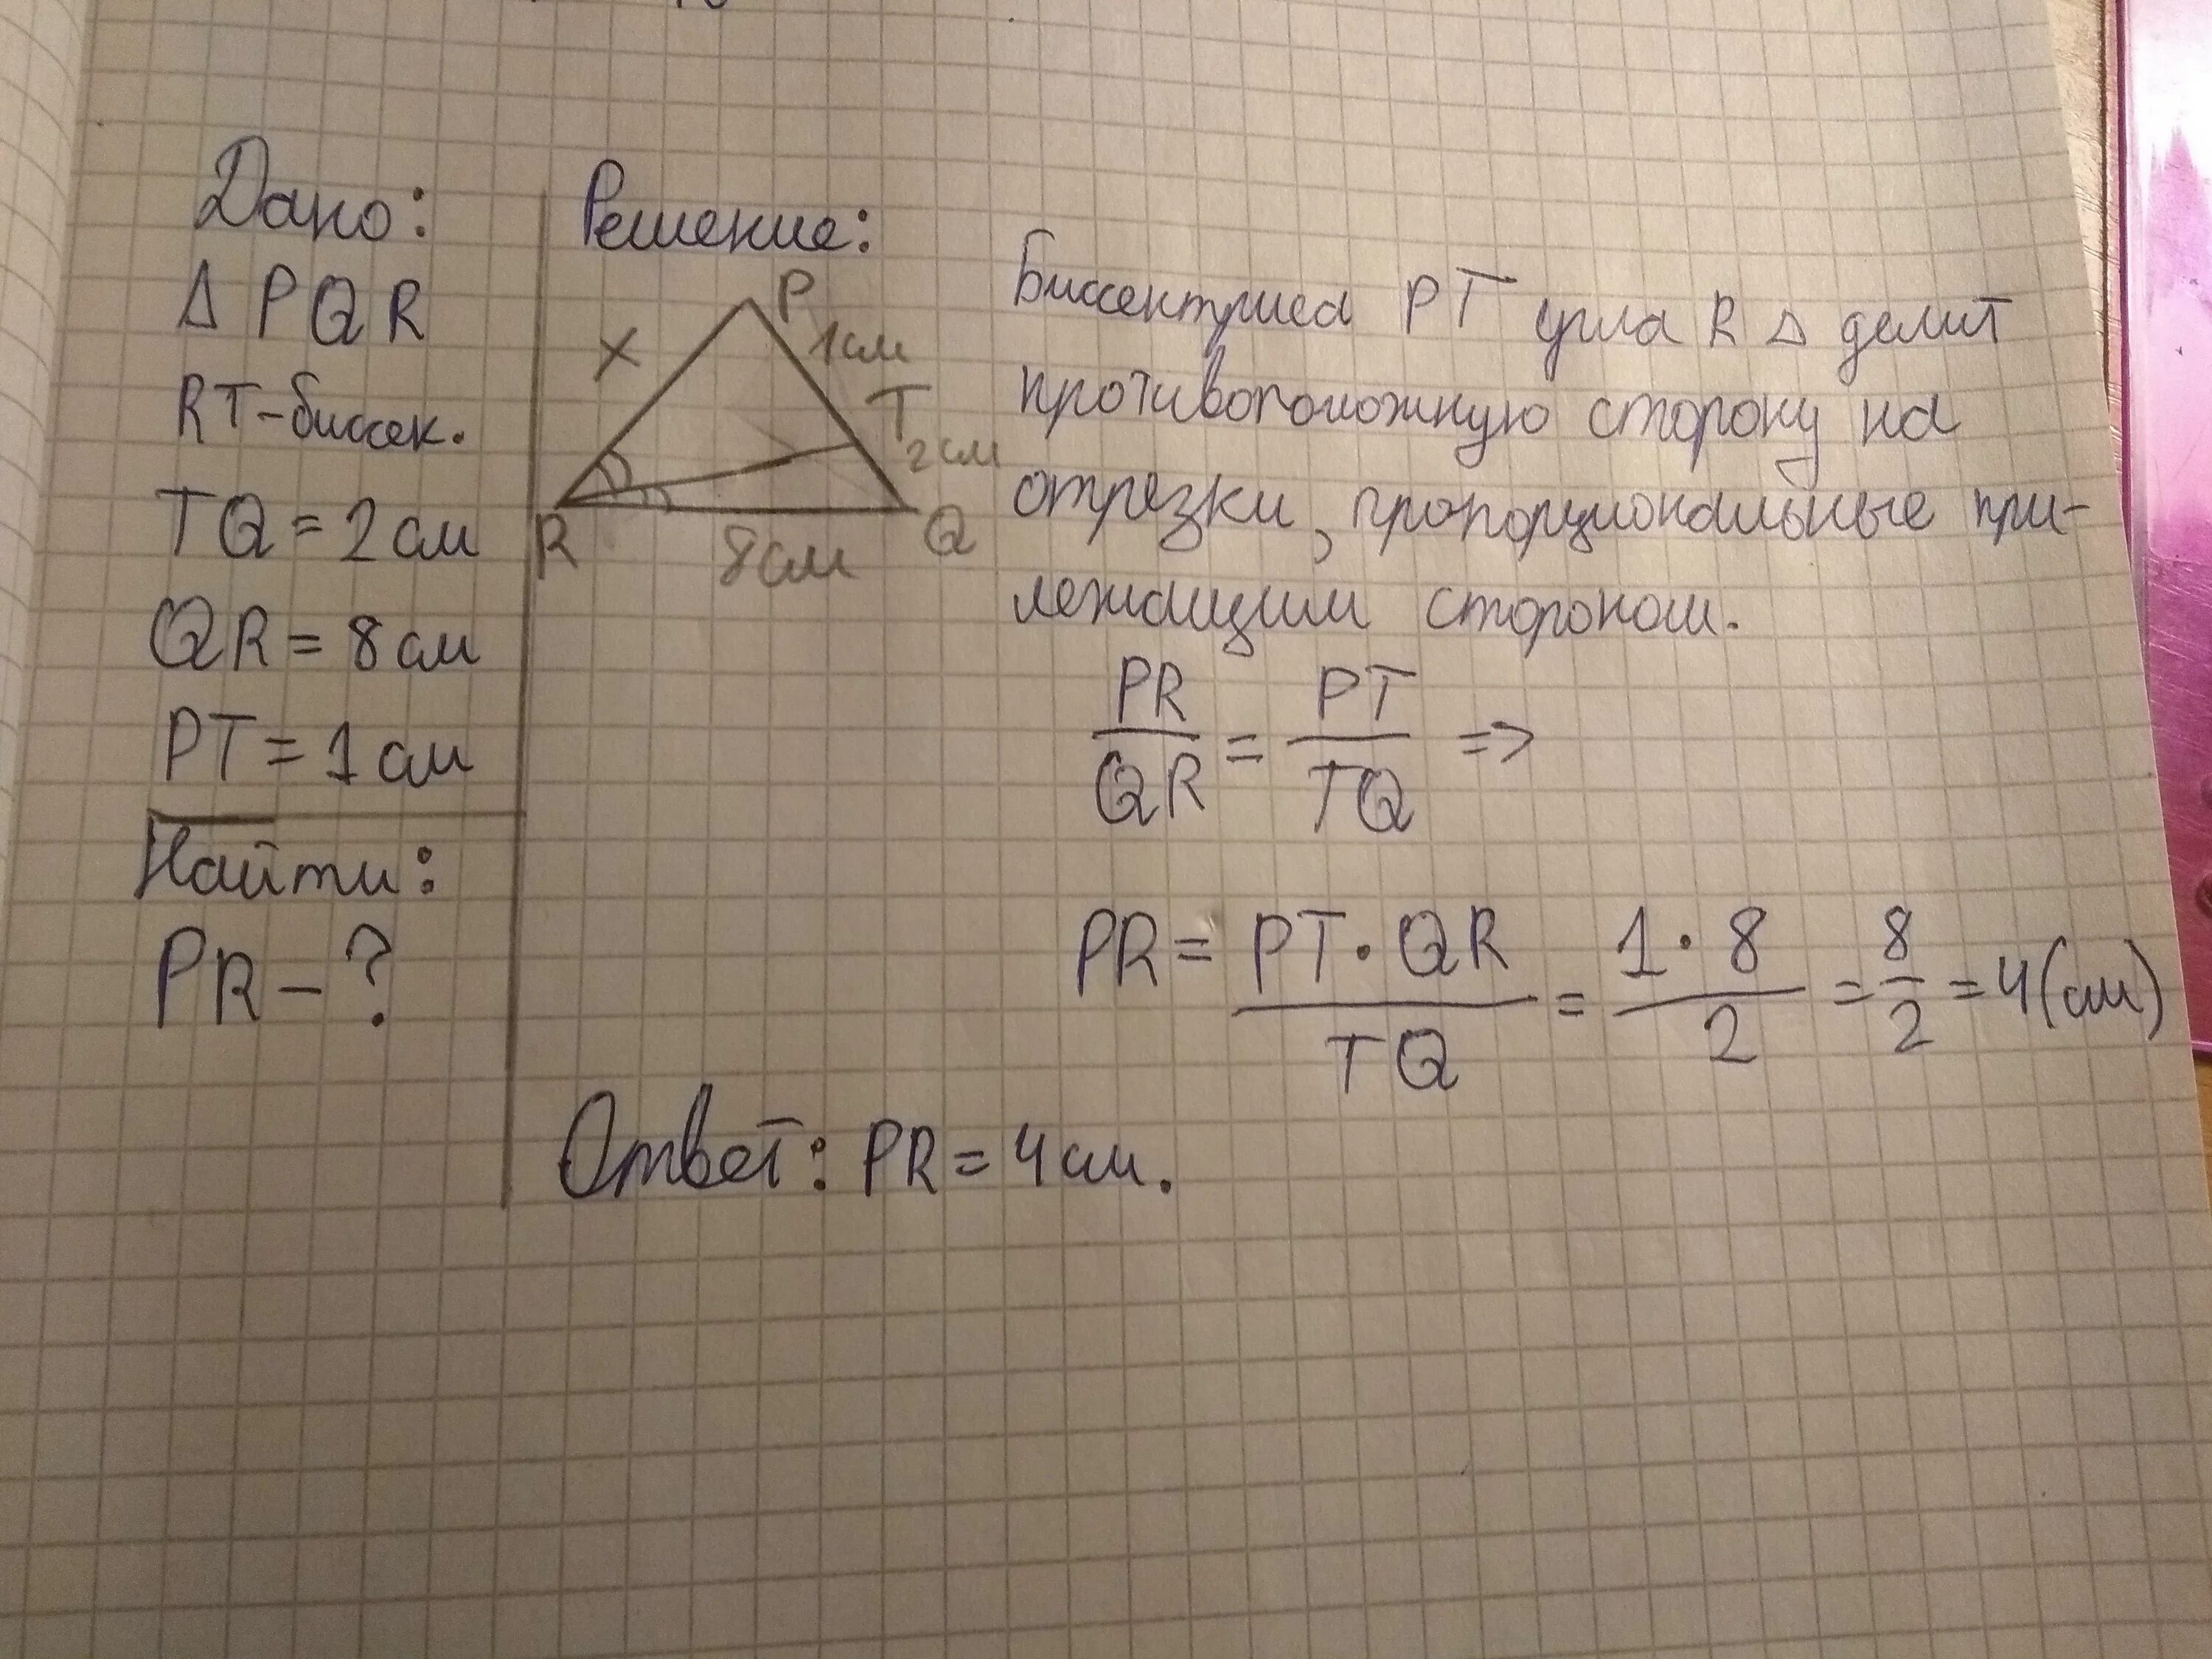 Дано:
Δ PQR
RT-биссек.
TQ = 2 см
QR = 8 см
PT = 1 см
Найти:
PR - ?
Решение:
P
X
1 см
T
2 см
R
8 см
Q
Биссектриса PT угла R Δ делит
противоположную сторону на
отрезки, пропорциональные при-
лежащим сторонам.
PR/QR = PT/TQ =>
PR = PT · QR/TQ = 1 · 8/2 = 8/2 = 4 (см)
Ответ: PR = 4 см.